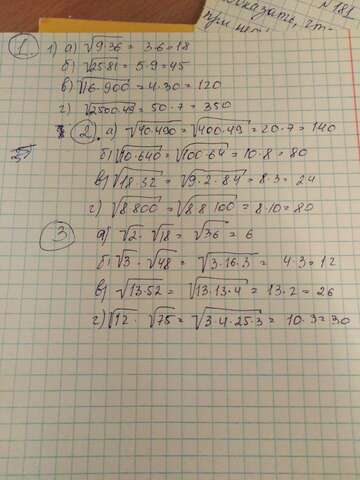 казать, что
при не
N181
1. 1) а) √9·36 = 3·6=18
б) √25·81 = 5·9=45
в) √16·900 = 4·30 = 120
г) √2500·49 = 50·7 = 350
2. а) √40·490 = √400·49 = 20·7 = 140
б) √10·640 = √100·64 = 10·8 = 80
в) √18·32 = √9·2·84 = 8·3 = 24
г) √8·800 = √8·8·100 = 8·10 = 80
3 а) √2 · √18 = √36 = 6
б) √3 · √48 = √3·16·3 = 4·3 = 12
в) √13·52 = √13·13·4 = 13·2 = 26
г) √12 · √75 = √3·4·25·3 = 10·3=30